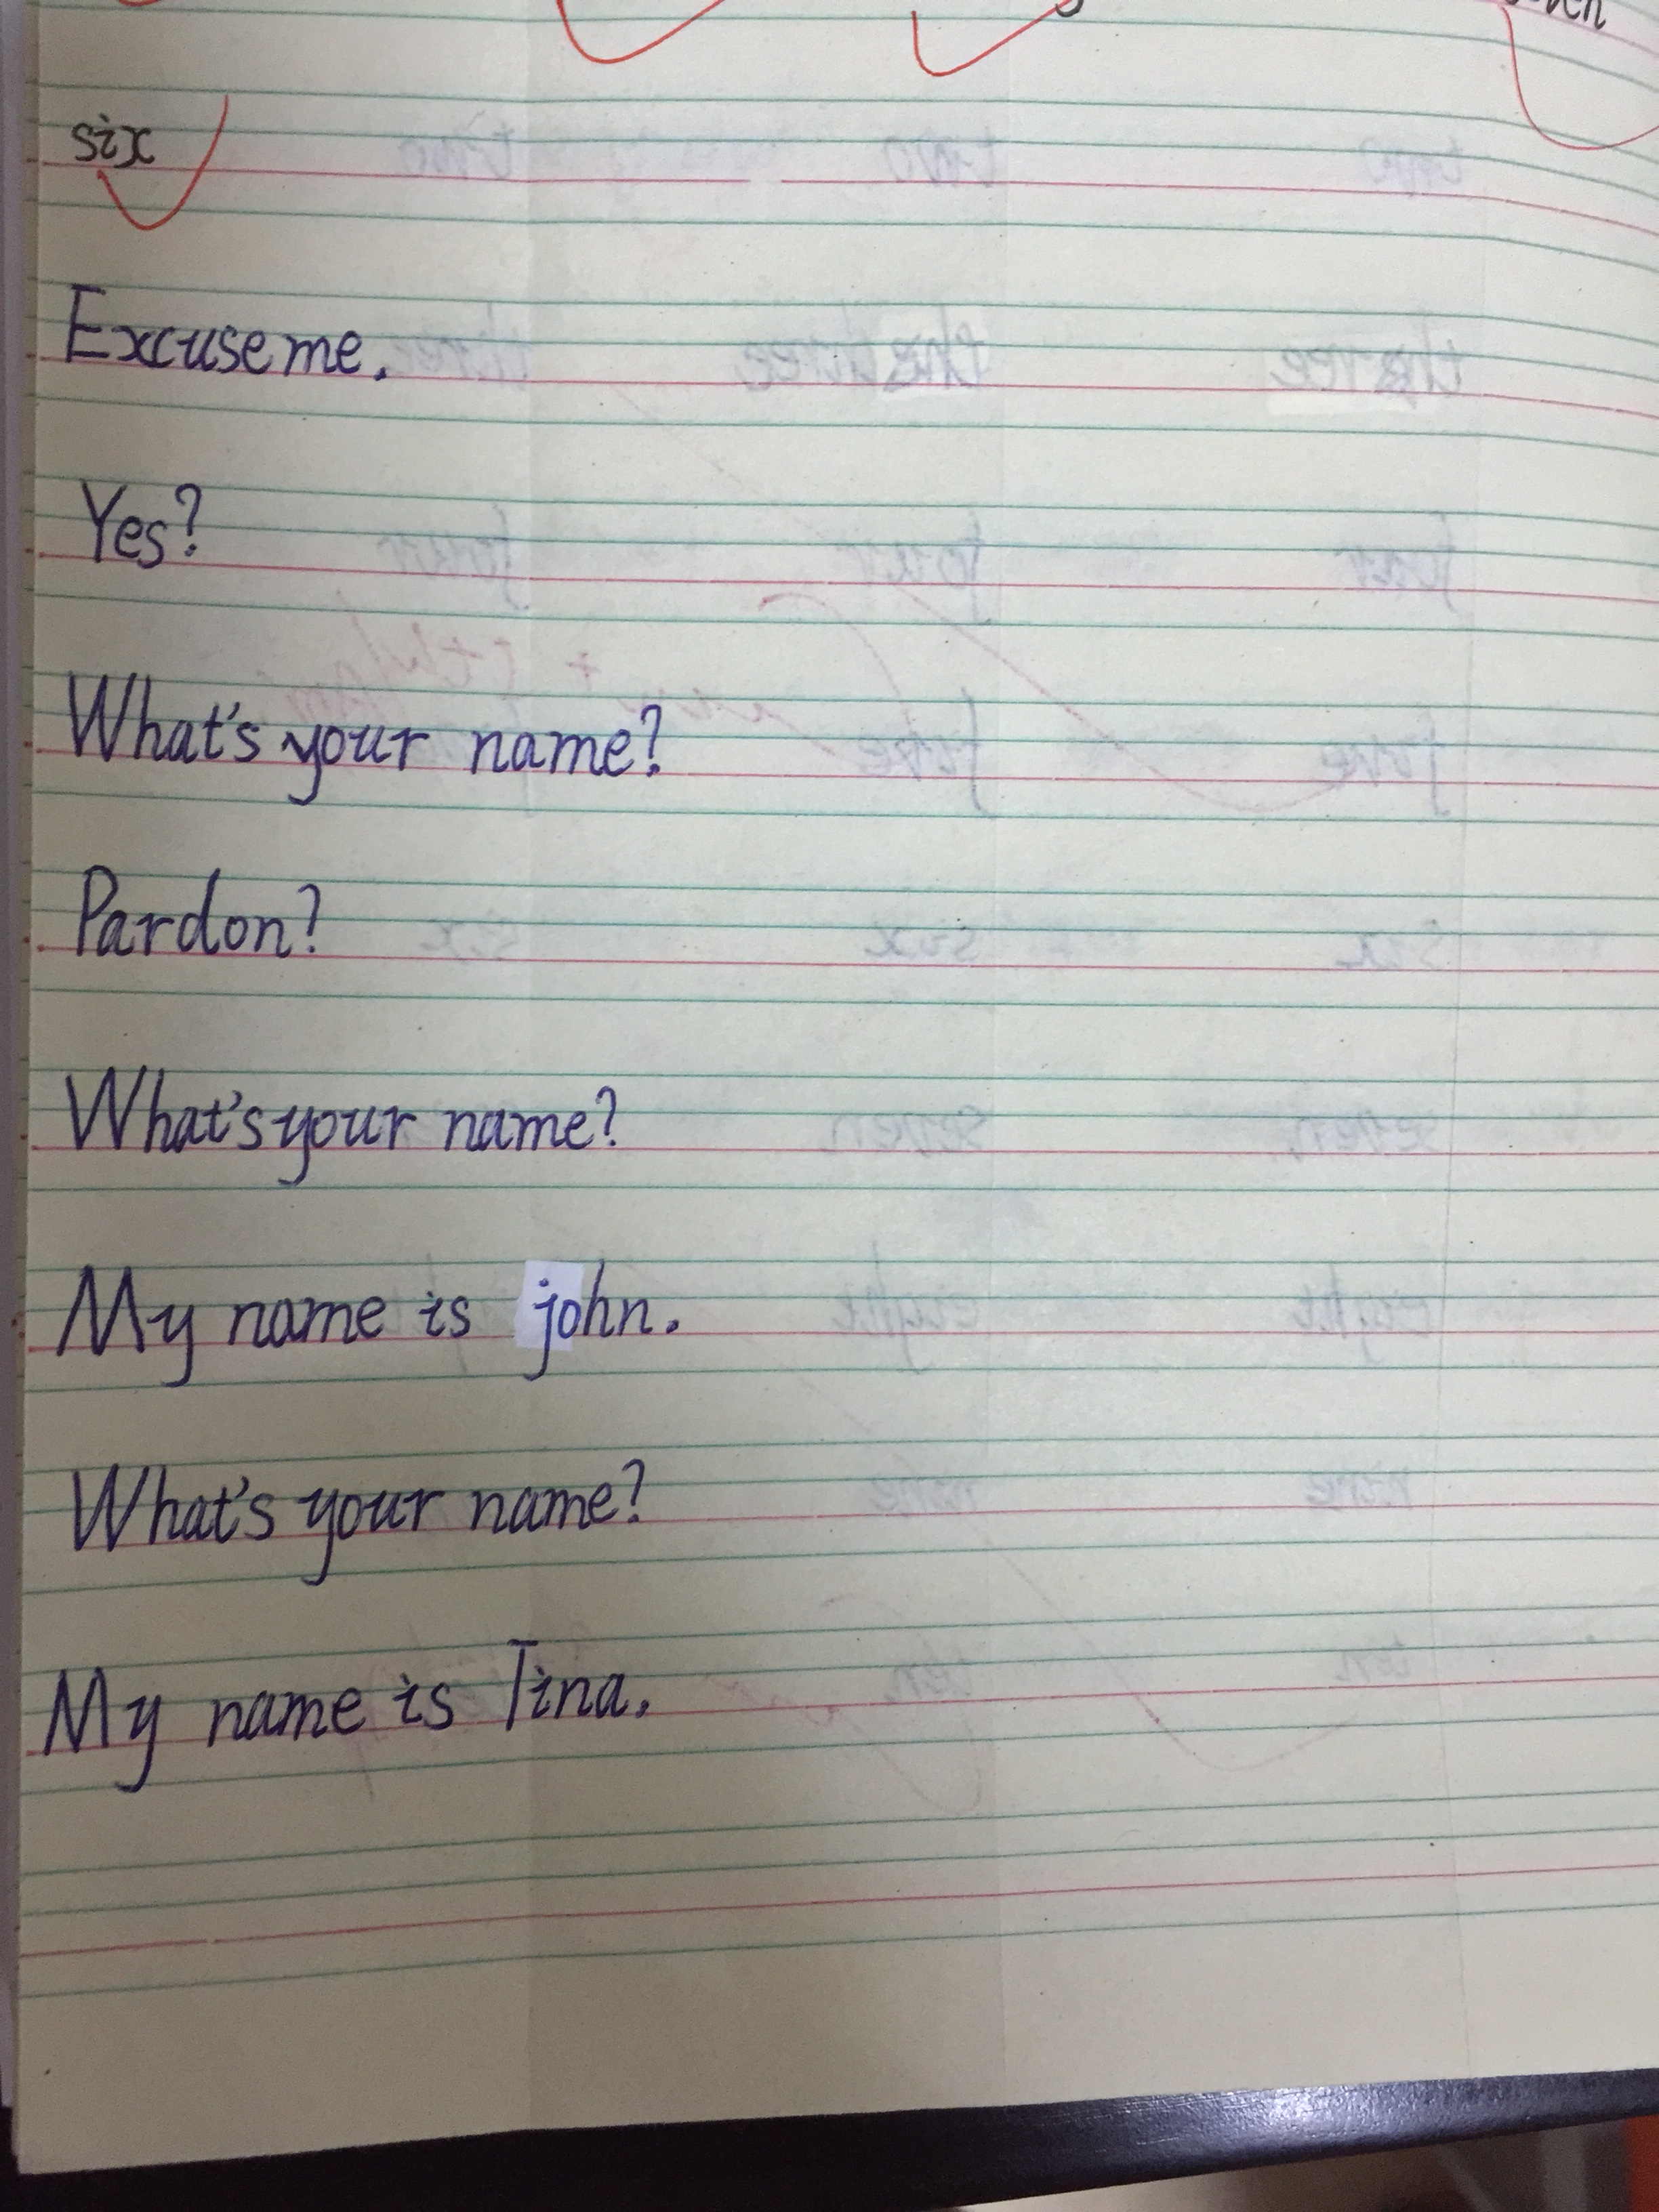 six
Excuse me.
Yes?
What's your name?
Pardon?
What's your name?
My name is john.
What's your name?
My name is Tina.